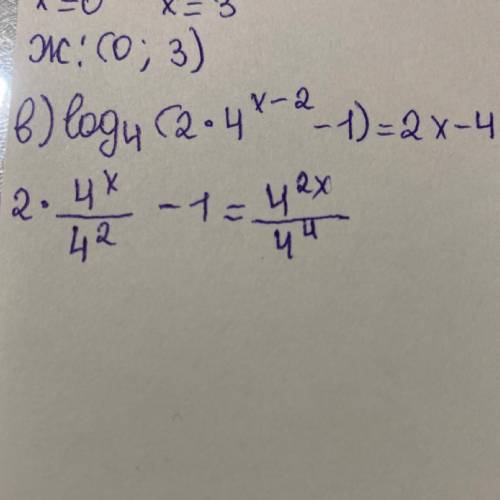 x=0 x=3
Ж: (0; 3)
в) log₄ (2·4^(x-2) -1)=2x-4
2· 4^x/4^2 -1= 4^(2x)/4^4